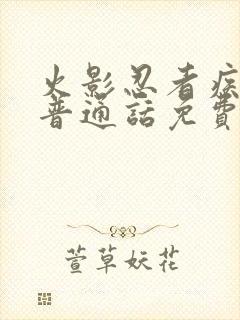 火影忍者疾
普通話免費
萱草妖花